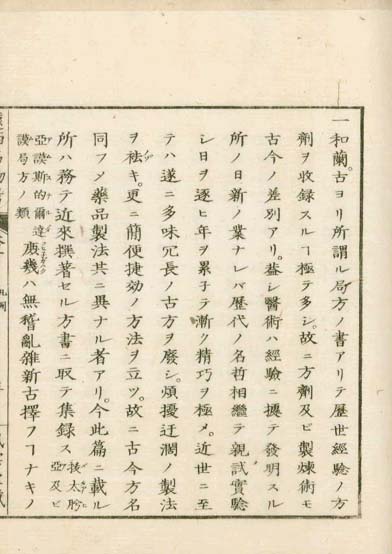 一和蘭。古ヨリ所謂ル局方ノ書アリテ歴世経験ノ方
劑ヲ収録スルヿ極テ多シ。故ニ方劑及ビ製煉術モ
古今ノ差別アリ。蓋シ醫術ハ経驗ニ據テ發明スル
所ノ日新ノ業ナレバ歴代ノ名哲相繼テ親試實驗
シ日ヲ逐ヒ年ヲ累子テ漸ク精巧ヲ極メ。近世ニ至
テハ遂ニ多味冗長ノ古方ヲ廢シ。煩擾迂濶ノ製法
ヲ袪キ。更ニ簡便捷効ノ方法ヲ立ツ。故ニ古今方名
同フメ藥品製法共ニ異ナル者アリ。今此篇ニ載ル
所ハ務テ近來撰著セル方書ニ取テ集録ス 亞及ビ
亞謨斯的爾達謨局方ノ類 庶幾ハ無稽亂雜新古擇フヿナキノ